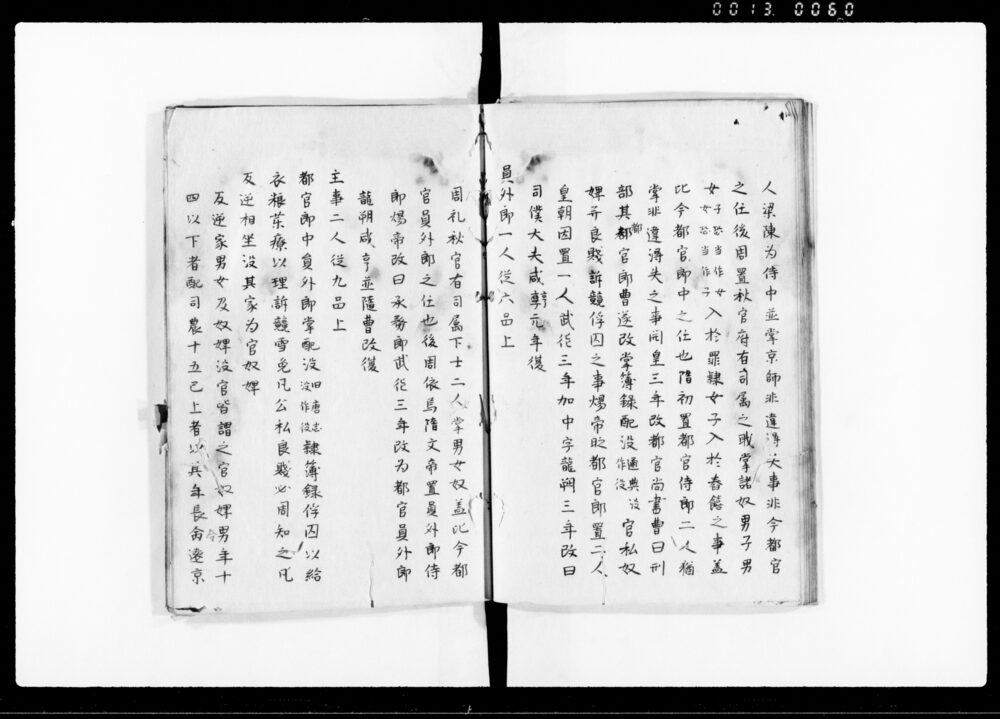 0013.0060
人梁陳為侍中並掌京師非違得失事非今都官
之任後周置秋官府有司属之職掌諸奴男子男
女子恐当作女
女恐当作子
入於罪隷女子入於舂饎之事盖
比今都官郎中之任也隋初置都官侍郎二人猶
掌非違得失之事開皇三年改都官尚書曹曰刑
部其都官郎曹遂改掌簿録配没
通典没
作役
官私奴
婢并良賤訴競俘囚之事煬帝改都官郎置二人
皇朝因置一人武徳三年加中字龍朔三年改曰
司僕大夫咸亨元年復
員外郎一人従六品上
周礼秋官有司属下士二人掌男女奴盖比今都
官員外郎之任也後周依焉隋文帝置員外郎侍
郎煬帝改曰承務郎武徳三年改為都官員外郎
龍朔咸亨並隨曹改復
主事二人従九品上
都官郎中員外郎掌配没
旧唐志
没作役
隷簿録俘囚以給
衣粮薬療以理訴競雪免凡公私良賤必周知之凡
反逆相坐没其家為官奴婢
反逆家男女及奴婢没官皆謂之官奴婢男年十
四以下者配司農十五已上者以其年長命遠京